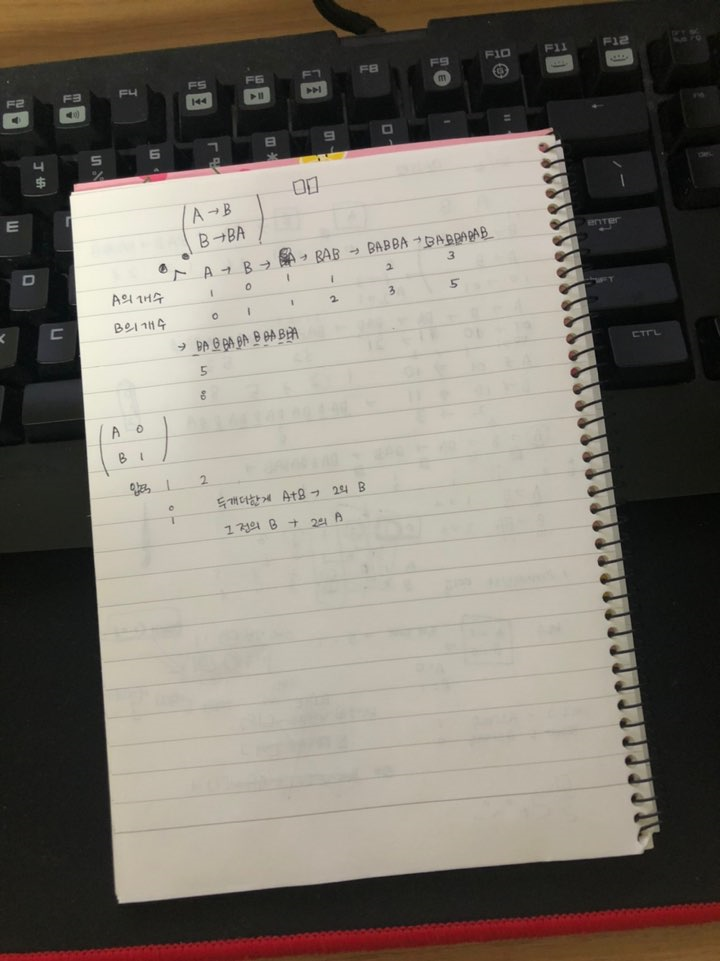 F2 F3 F4 F5 F6 F7 F8 F9 F10 F11 F12
4 $ 5 % 6 7 8 * 9 0 - =
E
D
X C
ENTER
SHIFT
CTRL
DEL
A → B
B → BA
A → B → BA → BAB → BABBA → BABBABAB
A의 개수 1 0 1 1 2 3
B의 개수 0 1 1 2 3 5
→ BABBABABBABBA
5
8
A 0
B 1
입력 1 2
0 두개더한게 A+B → 2의 B
1 1 전의 B → 2의 A